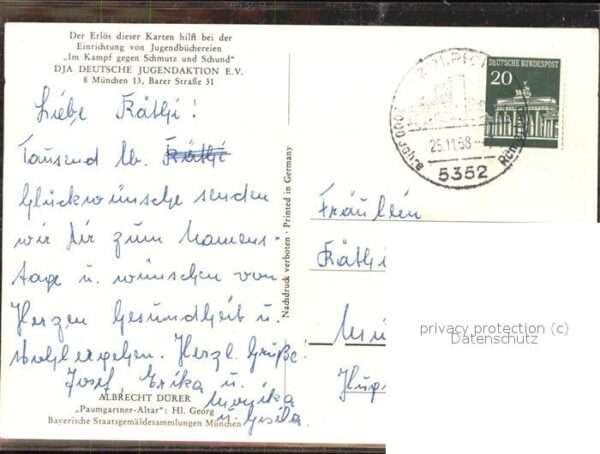 Der Erlös dieser Karten hilft bei der
Einrichtung von Jugendbüchereien
„Im Kampf gegen Schmutz und Schund"
DJA DEUTSCHE JUGENDAKTION E.V.
8 München 13, Barer Straße 31
Liebe Käthi!
Tausend lb. Käthi
Glückwünsche senden
wir Dir zum Namens-
tage u. wünschen von
Herzen Gesundheit u.
Wohlergehen. Herzl. Grüße!
Josef Erika u.
Monika
u. Gisela.
ALBRECHT DÜRER
„Paumgartner-Altar": Hl. Georg
Bayerische Staatsgemäldesammlungen München
Nachdruck verboten · Printed in Germany
ZÜLPICH
DEUTSCHE BUNDESPOST
20
25.11.68
5352
Fräulein
Käthi
privacy protection (c)
Datenschutz